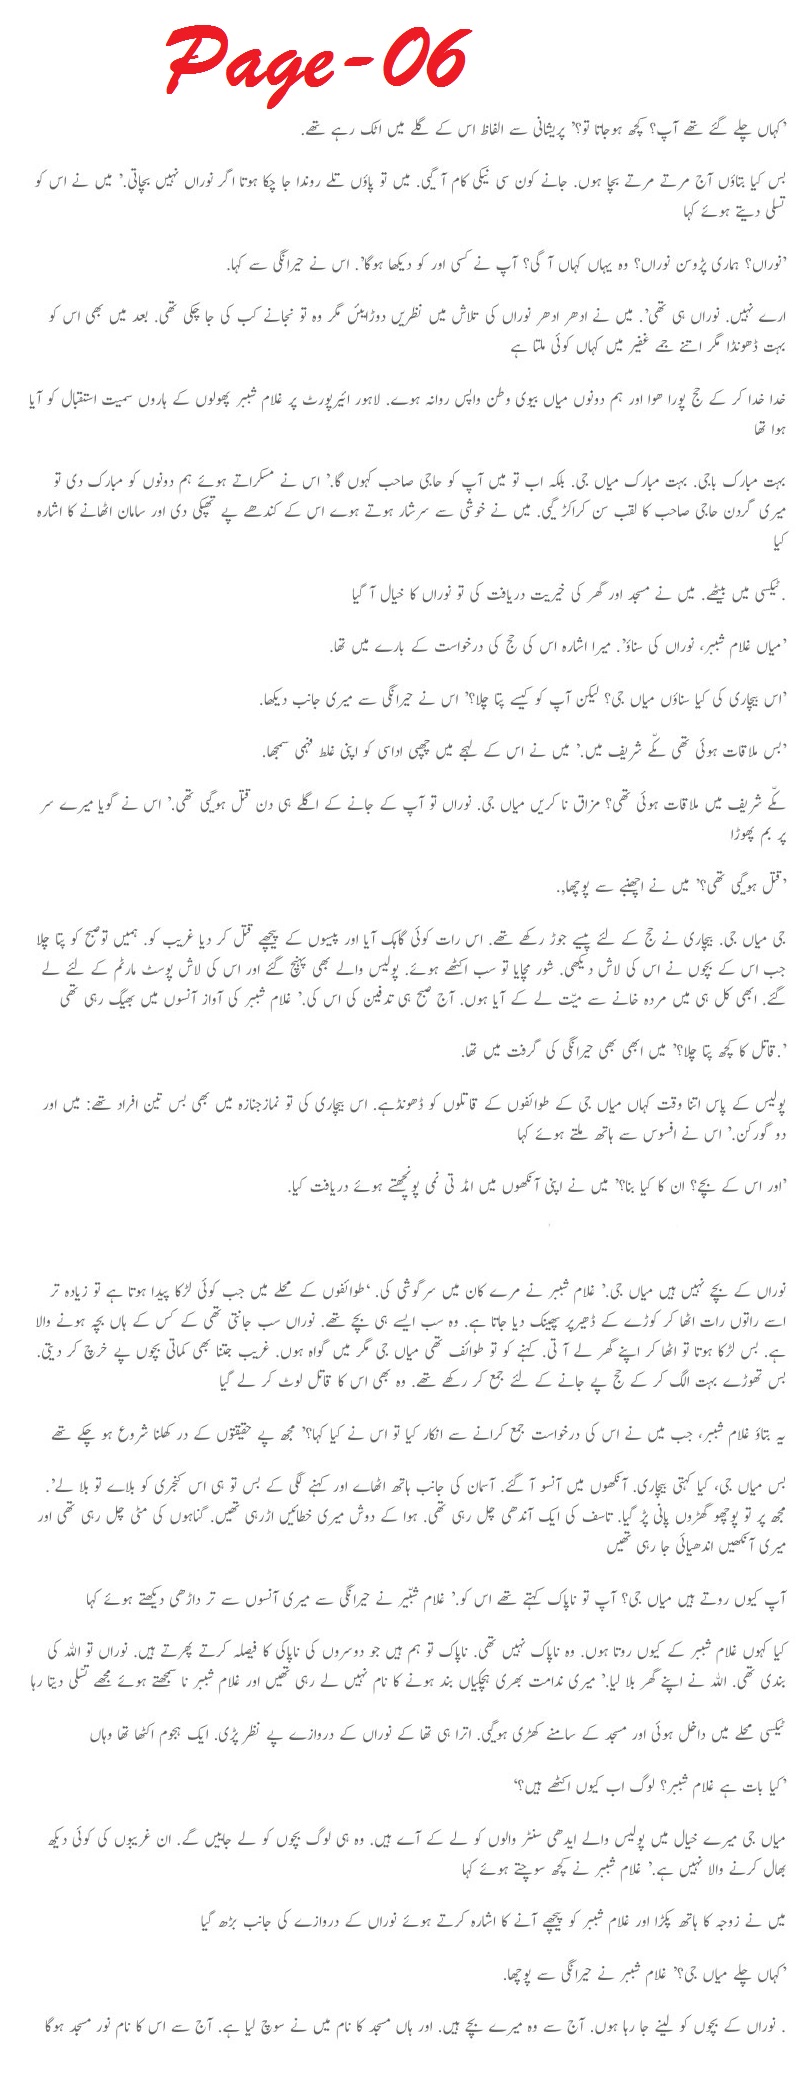 Page-06
'کہاں چلے گئے تھے آپ؟ کچھ ہوجاتا تو؟' پریشانی سے الفاظ اس کے گلے میں اٹک رہے تھے.
بس کیا بتاؤں آج مرتے مرتے بچا ہوں. جانے کون سی نیکی کام آ گیی. میں تو پاؤں تلے روندا جا چکا ہوتا اگر نوراں نہیں بچاتی.' میں نے اس کو
تسلی دیتے ہوئے کہا
'نوراں؟ ہماری پڑوسن نوراں؟ وہ یہاں کہاں آ گی؟ آپ نے کسی اور کو دیکھا ہوگا'. اس نے حیرانگی سے کہا.
ارے نہیں. نوراں ہی تھی'. میں نے ادھر ادھر نوراں کی تلاش میں نظریں دوڑایئں مگر وہ تو نجانے کب کی جا چکی تھی. بعد میں بھی اس کو
بہت ڈھونڈا مگر اتنے جمے غفیر میں کہاں کوئی ملتا ہے
خدا خدا کر کے حج پورا ھوا اور ہم دونوں میاں بیوی وطن واپس روانہ ہوے. لاہور ائیرپورٹ پر غلام شببر پھولوں کے ہاروں سمیت استقبال کو آیا
ہوا تھا
بہت مبارک باجی. بہت مبارک میاں جی. بلکہ اب تو میں آپ کو حاجی صاحب کہوں گا.' اس نے مسکراتے ہوئے ہم دونوں کو مبارک دی تو
میری گردن حاجی صاحب کا لقب سن کراکڑ گیی. میں نے خوشی سے سرشار ہوتے ہوے اس کے کندھے پے تھپکی دی اور سامان اٹھانے کا اشارہ
کیا
.ٹیکسی میں بیٹھے. میں نے مسجد اور گھر کی خیریت دریافت کی تو نوراں کا خیال آ گیا
'میاں غلام شببر، نوراں کی سناؤ'. میرا اشارہ اس کی حج کی درخواست کے بارے میں تھا.
'اس بیچاری کی کیا سناؤں میاں جی؟ لیکن آپ کو کیسے پتا چلا؟' اس نے حیرانگی سے میری جانب دیکھا.
'بس ملاقات ہوئی تھی مکّے شریف میں.' میں نے اس کے لہجے میں چھپی اداسی کو اپنی غلط فہمی سمجھا.
مکّے شریف میں ملاقات ہوئی تھی؟ مزاق نا کریں میاں جی. نوراں تو آپ کے جانے کے اگلے ہی دن قتل ہوگیی تھی.' اس نے گویا میرے سر
پر بم پھوڑا
'قتل ہوگیی تھی؟' میں نے اچھنبے سے پوچھا,.
جی میاں جی. بیچاری نے حج کے لئے پیسے جوڑ رکھے تھے. اس رات کوئی گاہک آیا اور پیسوں کے پیچھے قتل کر دیا غریب کو. ہمیں توصبح کو پتا چلا
جب اس کے بچوں نے اس کی لاش دیکھی. شور مچایا تو سب اکٹھے ہوئے. پولیس والے بھی پہنچ گئے اور اس کی لاش پوسٹ مارٹم کے لئے لے
گئے. ابھی کل ہی میں مردہ خانے سے میّت لے کے آیا ہوں. آج صبح ہی تدفین کی اس کی.' غلام شببر کی آواز آنسوں میں بھیگ رہی تھی
'.قاتل کا کچھ پتا چلا؟' میں ابھی بھی حیرانگی کی گرفت میں تھا.
پولیس کے پاس اتنا وقت کہاں میاں جی کے طوائفوں کے قاتلوں کو ڈھونڈہے. اس بیچاری کی تو نمازجنازہ میں بھی بس تین افراد تھے: میں اور
دو گورکن.' اس نے افسوس سے ہاتھ ملتے ہوئے کہا
'اور اس کے بچے؟ ان کا کیا بنا؟' میں نے اپنی آنکھوں میں امڈ تی نمی پونچھتے ہوئے دریافت کیا.
نوراں کے بچے نہیں ہیں میاں جی.' غلام شببر نے مرے کان میں سرگوشی کی. 'طوائفوں کے محلے میں جب کوئی لڑکا پیدا ہوتا ہے تو زیادہ تر
اسے راتوں رات اٹھا کر کوڑے کے ڈھیرپر پھینک دیا جاتا ہے. وہ سب ایسے ہی بچے تھے. نوراں سب جانتی تھی کے کس کے ہاں بچہ ہونے والا
ہے. بس لڑکا ہوتا تو اٹھا کر اپنے گھر لے آ تی. کہنے کو تو طوائف تھی میاں جی مگر میں گواہ ہوں. غریب جتنا بھی کماتی بچوں پے خرچ کر دیتی.
بس تھوڑے بہت الگ کر کے حج پے جانے کے لئے جمع کر رکھے تھے. وہ بھی اس کا قاتل لوٹ کر لے گیا
یہ بتاؤ غلام شببر، جب میں نے اس کی درخواست جمع کرانے سے انکار کیا تو اس نے کیا کہا؟' مجھ پے حقیقتوں کے در کھلنا شروع ہو چکے تھے
بس میاں جی، کیا کہتی بیچاری. آنکھوں میں آنسو آ گئے. آسمان کی جانب ہاتھ اٹھاے اور کہنے لگی کے بس تو ہی اس کنجری کو بلاے تو بلا لے'.
مجھ پر تو پوچھو گھڑوں پانی پڑ گیا. تاسف کی ایک آندھی چل رہی تھی. ہوا کے دوش میری خطائیں اڑرہی تھیں. گناہوں کی مٹی چل رہی تھی اور
میری آنکھیں اندھیائی جا رہی تھیں
آپ کیوں روتے ہیں میاں جی؟ آپ تو ناپاک کہتے تھے اس کو.' غلام شبّیر نے حیرانگی سے میری آنسوں سے تر داڑھی دیکھتے ہوئے کہا
کیا کہوں غلام شببر کے کیوں روتا ہوں. وہ ناپاک نہیں تھی. ناپاک تو ہم ہیں جو دوسروں کی ناپاکی کا فیصلہ کرتے پھرتے ہیں. نوراں تو اللہ کی
بندی تھی. اللہ نے اپنے گھر بلا لیا.' میری ندامت بھری ہچکیاں بند ہونے کا نام نہیں لے رہی تھیں اور غلام شببر نا سمجھتے ہوئے مجھے تسلی دیتا رہا
ٹیکسی محلے میں داخل ہوئی اور مسجد کے سامنے کھڑی ہوگیی. اترا ہی تھا کے نوراں کے دروازے پے نظر پڑی. ایک ہجوم اکٹھا تھا وہاں
'کیا بات ہے غلام شببر؟ لوگ اب کیوں اکٹھے ہیں؟'
میاں جی میرے خیال میں پولیس والے ایدھی سنٹر والوں کو لے کے آے ہیں. وہ ہی لوگ بچوں کو لے جاییں گے. ان غریبوں کی کوئی دیکھ
بھال کرنے والا نہیں ہے.' غلام شببر نے کچھ سوچتے ہوئے کہا
میں نے زوجہ کا ہاتھ پکڑا اور غلام شببر کو پیچھے آنے کا اشارہ کرتے ہوئے نوراں کے دروازے کی جانب بڑھ گیا
'کہاں چلے میاں جی؟' غلام شببر نے حیرانگی سے پوچھا.
. نوراں کے بچوں کو لینے جا رہا ہوں. آج سے وہ میرے بچے ہیں. اور ہاں مسجد کا نام میں نے سوچ لیا ہے. آج سے اس کا نام نور مسجد ہوگا